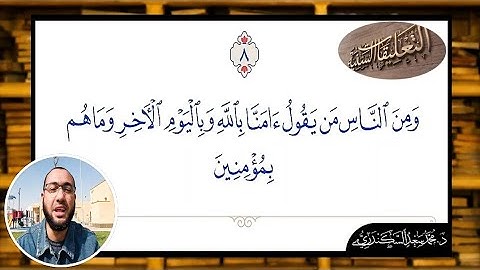 التعليقات
٨
وَمِنَ ٱلنَّاسِ مَن يَقُولُ ءَامَنَّا بِٱللَّهِ وَبِٱلْيَوْمِ ٱلْأَخِرِ وَمَا هُم
بِمُؤْمِنِينَ
د. محمد سعد السكندري